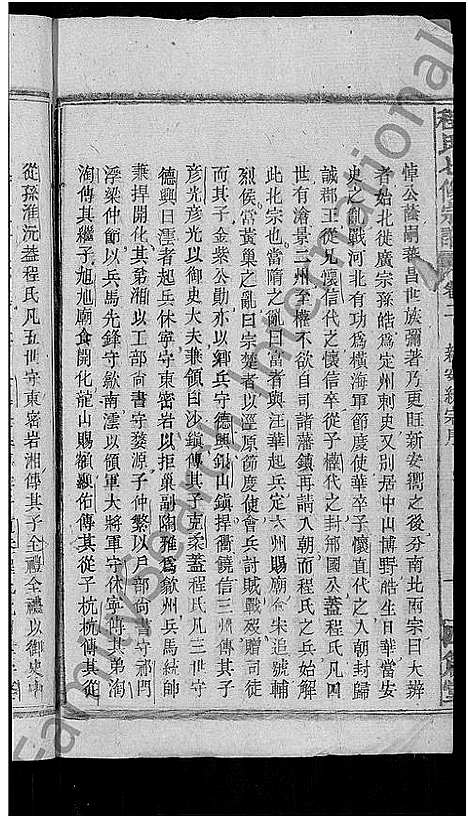 程氏七修宗譜
卷二
新安統宗序
悼公蔭嗣蕃昌世族彌著乃更旺新安卿之後分南北兩宗曰大辨
者始北徙廣宗孫皓爲定州刺史又別居中山博野皓生日華當安
史之亂戰河北有功爲橫海軍節度使華卒子懷直代之入朝封歸
誠郡王從兄懷信代之懷信卒從子權代之封邢國公蓋程氏凡四
世有滄景二州至權不欲自司諸藩鎮再請入朝而程氏之兵始解
此北宗也當隋之亂曰富者與汪華起兵定六州賜廟食宋追號輔
烈侯當黃巢之亂曰宗楚者以涇原節度使會兵討賊戰歿贈司徒
而其子金紫公勛亦以鄉兵守德興銀山鎮捍衢饒信三州傳其子
彥光彥光以御史大夫兼領白沙鎮傳其子克柔蓋程氏凡三世守
德興曰澐者起兵休寧守東密岩以拒巢副陶雅爲歙州兵馬統帥
兼捍開化其第湘以工部尙書守婺源子仲繁以戶部尙書守祁門
浮梁仲節以兵馬先鋒守歙南澐以領軍大將軍守休寧傳其弟淘
淘傳其繼子旭旭廟食開化龍山賜額顯佑傳其從子杭杭傳其從
從孫淮沅蓋程氏凡五世守東密岩湘傳其子全禮全禮以御史中
FamilySearch International